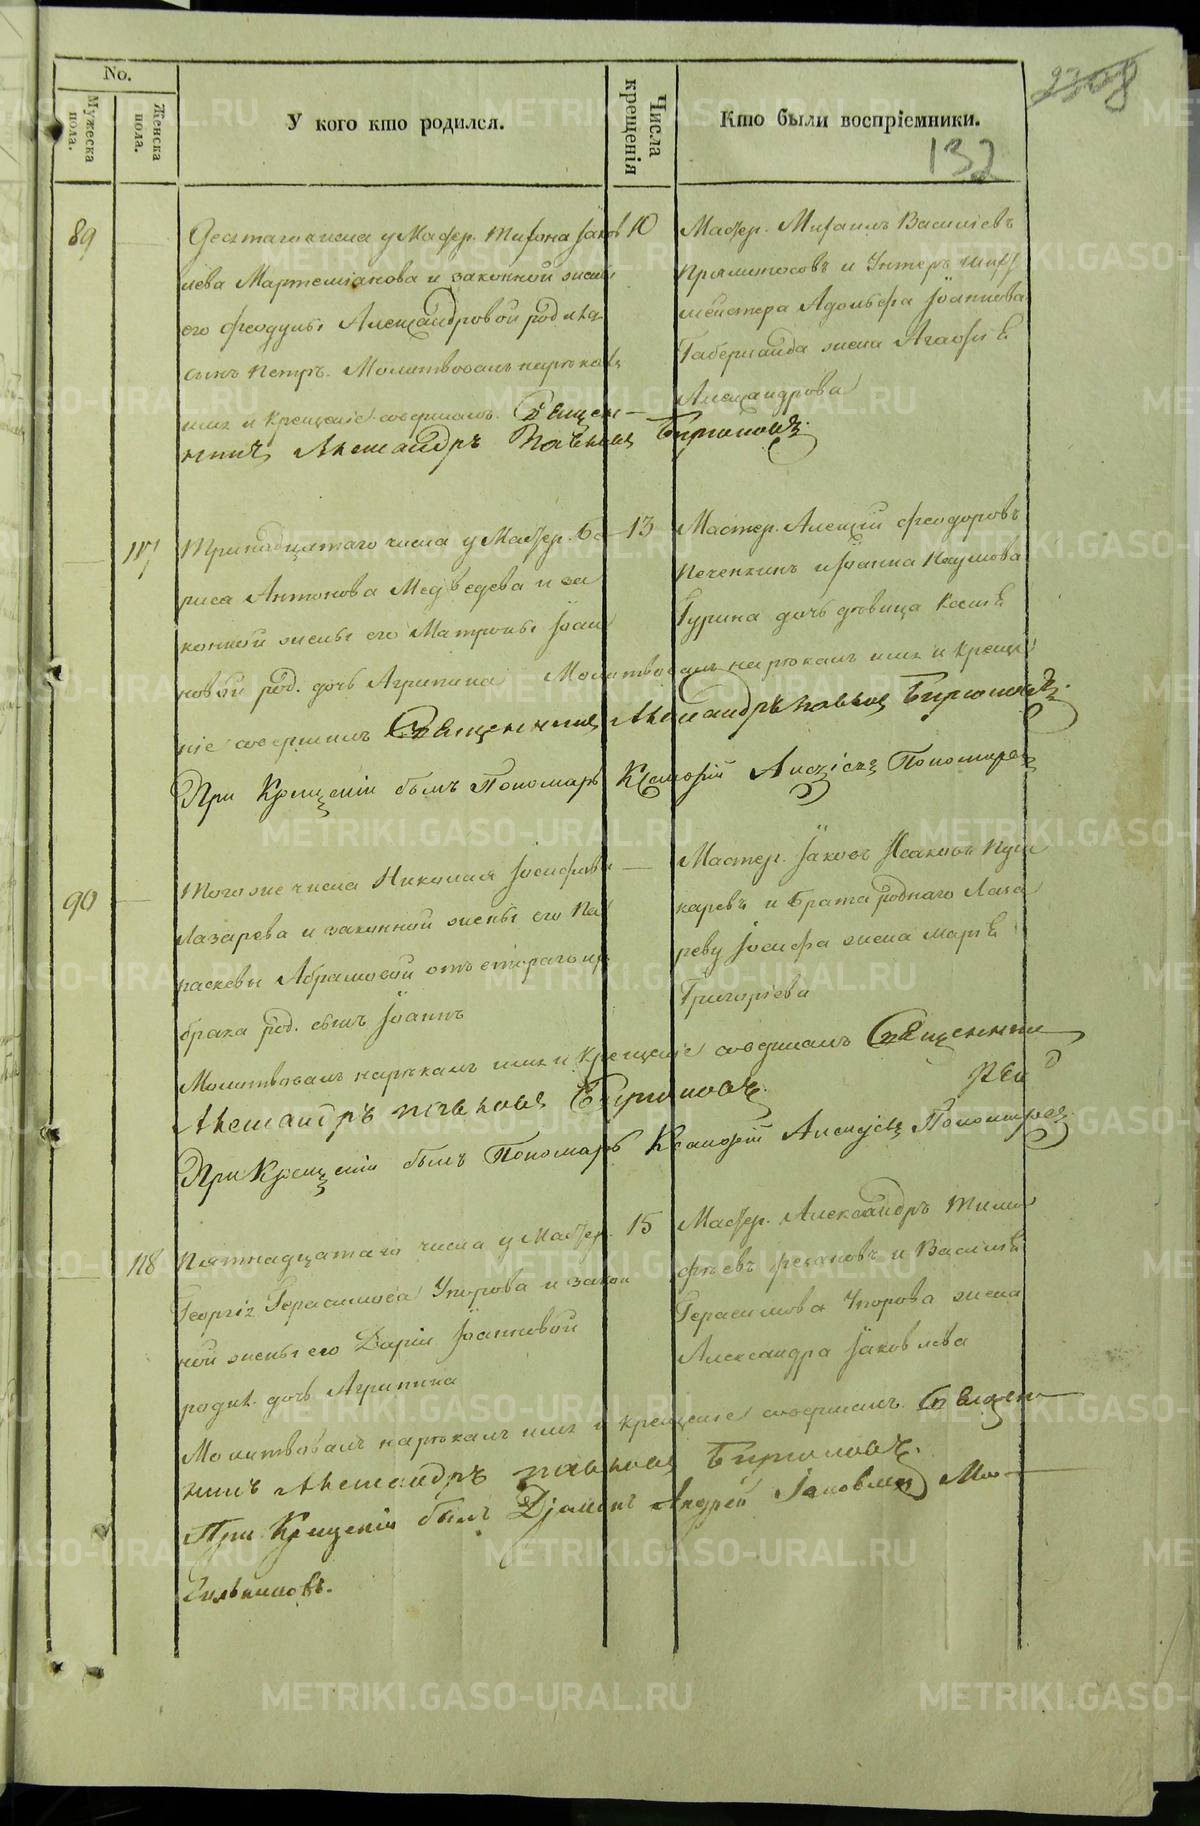 2308
132
No.
Мужеска пола.
Женска пола.
У кого кто родился.
Числа крещенія
Кто были воспріемники.
89
Десятаго числа у Мастер. Тифона Іаков
лева Мартемianова и законной жены
его Феодулы Александровой родился
сынъ Петръ. Молитвовалъ нарѣкалъ
имя и Крещеніе совершалъ. Священ-
никъ Александръ Павловъ Бирюковъ.
10
Мастер. Михаилъ Васильевъ
Прямоносовъ и Унтеръ ших
мейстера Адольфа Іоаннова
Габерланда жена Агафія
Александрова
117
Тринадцатаго числа у Мастер. Бо
риса Антонова Медвѣдева и за
конной жены его Матроны Іоан
новой род. дочь Агрипина Молитвовалъ нарѣкалъ имя и Креще
ніе совершилъ Священникъ Александръ Павловъ Бирюковъ.
При Крещеніи былъ Пономарь Пономаревъ
13
Мастер. Алексій Феодоровъ
Печенкинъ и Іоанна Наумова
Гурина дочь дѣвица Ксенія
90
Тогоже числа Николая Іосифова
Лазарева и законной жены его Па
раскевы Абрамовой отъ втораго
брака род. сынъ Іоаннъ
Молитвовалъ нарѣкалъ имя и Крещеніе совершалъ Священникъ
Александръ Павловъ Бирюковъ.
При Крещеніи былъ Пономарь Пономаревъ
Мастер. Іаковъ Исаковъ Пуш
каревъ и брата роднаго Лаза
реву Іосифа жена Марія
Григоріева
118
Пятнадцатаго числа у Мастер.
Георгія Герасимова Упорова и закон
ной жены его Даріи Іоанновой
родил. дочь Агрипина
Молитвовалъ нарѣкалъ имя и крещеніе совершалъ. Священ-
никъ Александръ Павловъ Бирюковъ.
При Крещеніи былъ Діаконъ Андрей Іаковлевъ
15
Мастер. Александръ Тимо
фѣевъ и Василія
Герасимова Упорова жена
Александра Іаковлева
METRIKI.GASO-URAL.RU